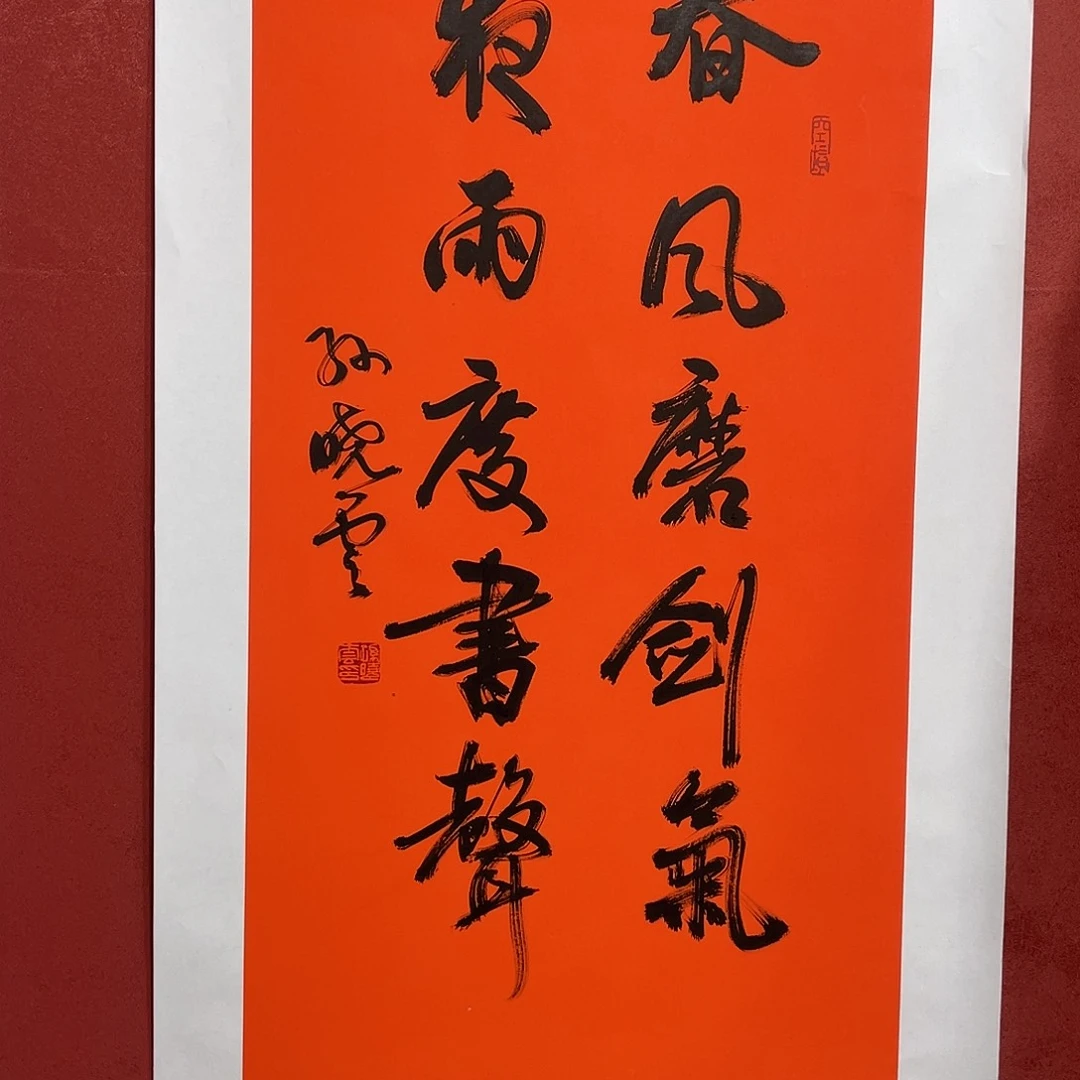 春风磨剑氣
夜雨度書聲
孙晓云